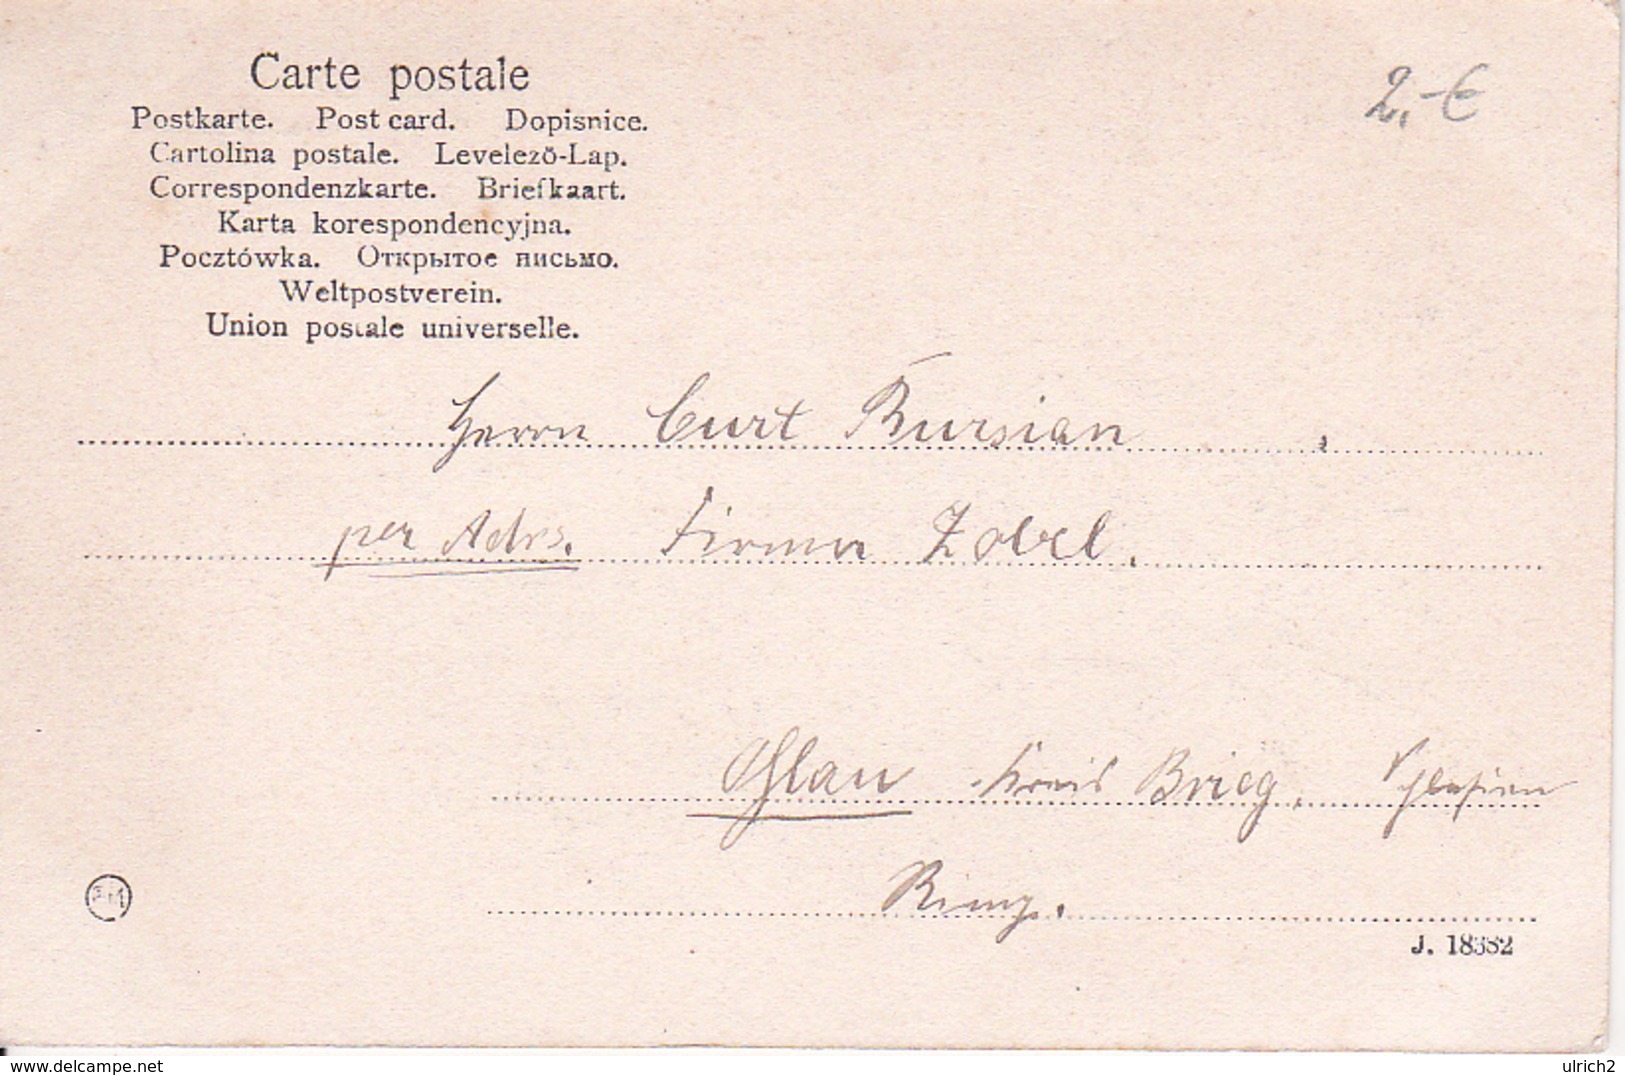 Carte postale
2,-€
Postkarte. Post card. Dopisnice.
Cartolina postale. Levelező-Lap.
Correspondenzkarte. Briefkaart.
Karta korespondencyjna.
Pocztówka. Открытое письмо.
Weltpostverein.
Union postale universelle.
Herrn Curt Bursian,
per Adrs. Firma Zobel.
Ohlau Kreis Brieg, Schlesien
Ring.
J. 18382
delcampe.net
ulrich2